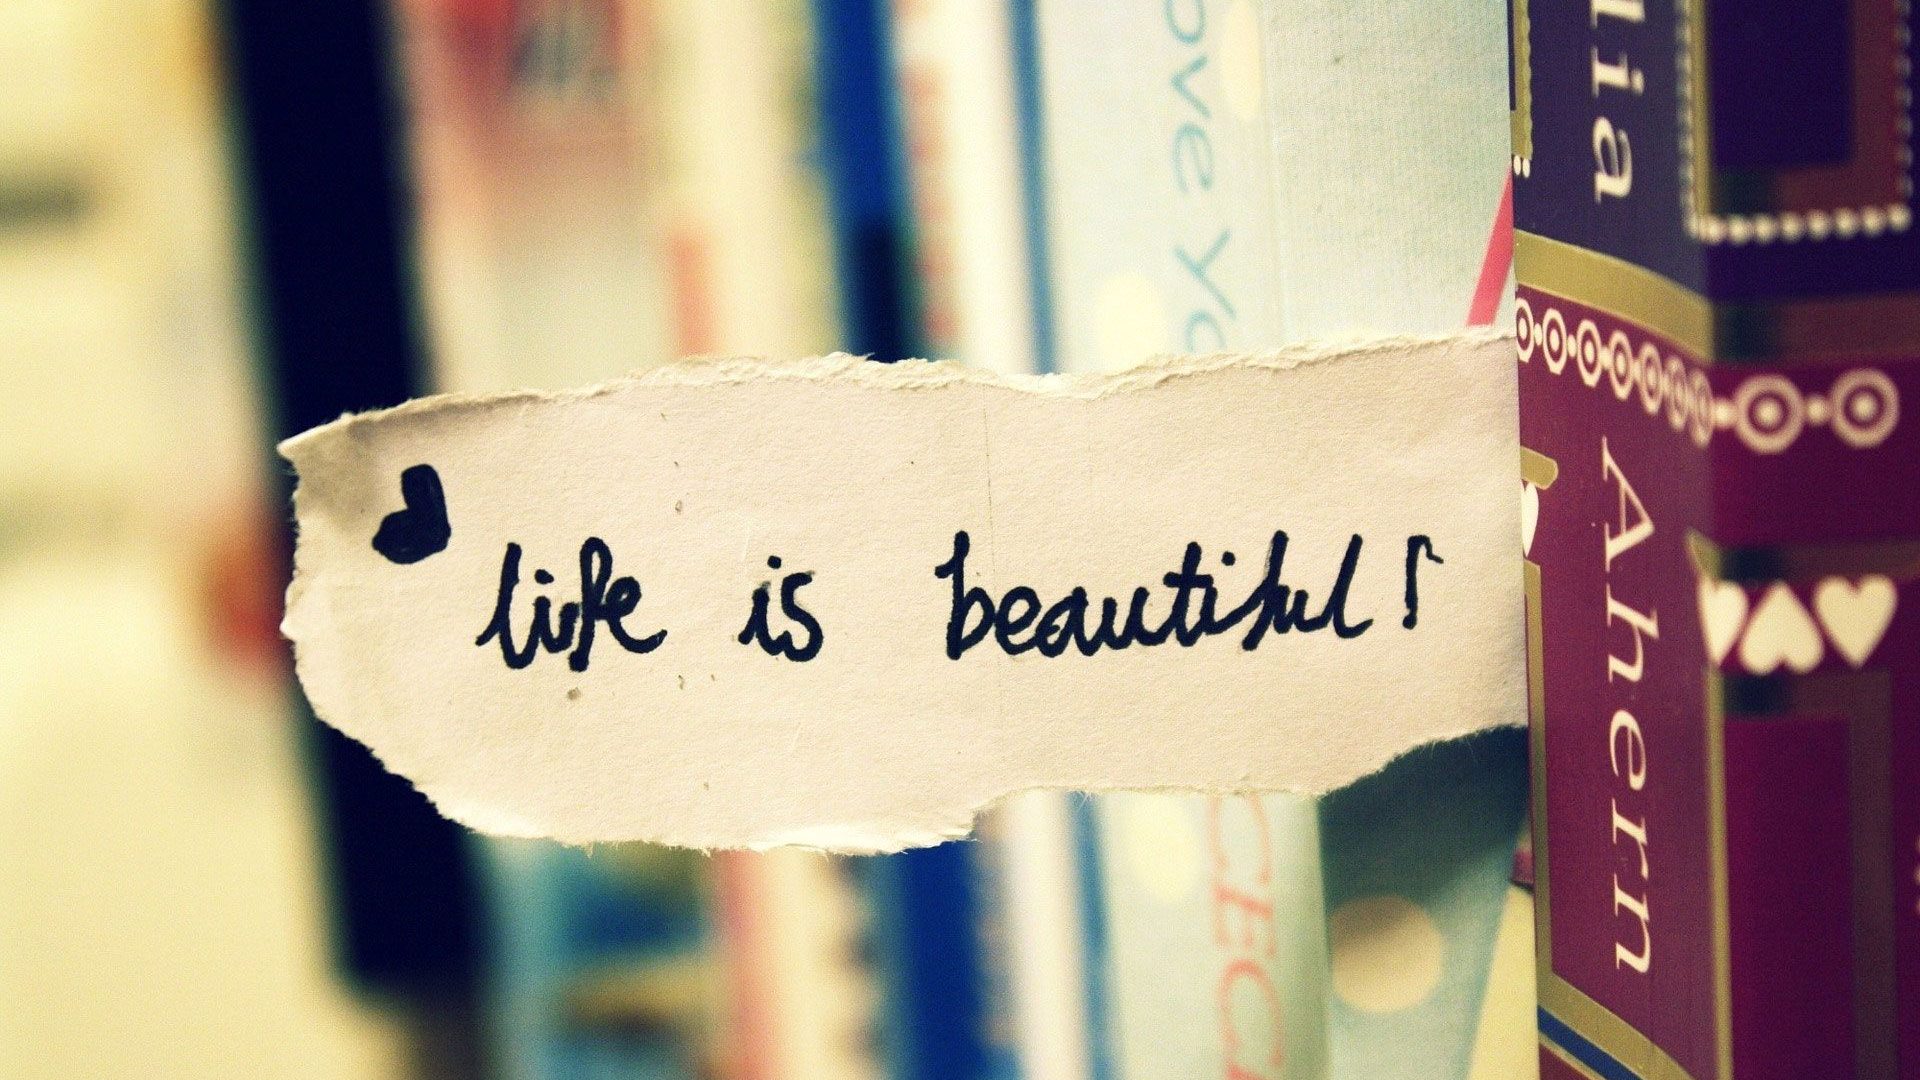 life is beautiful!
ove Yo
lia
Ahern
CEC